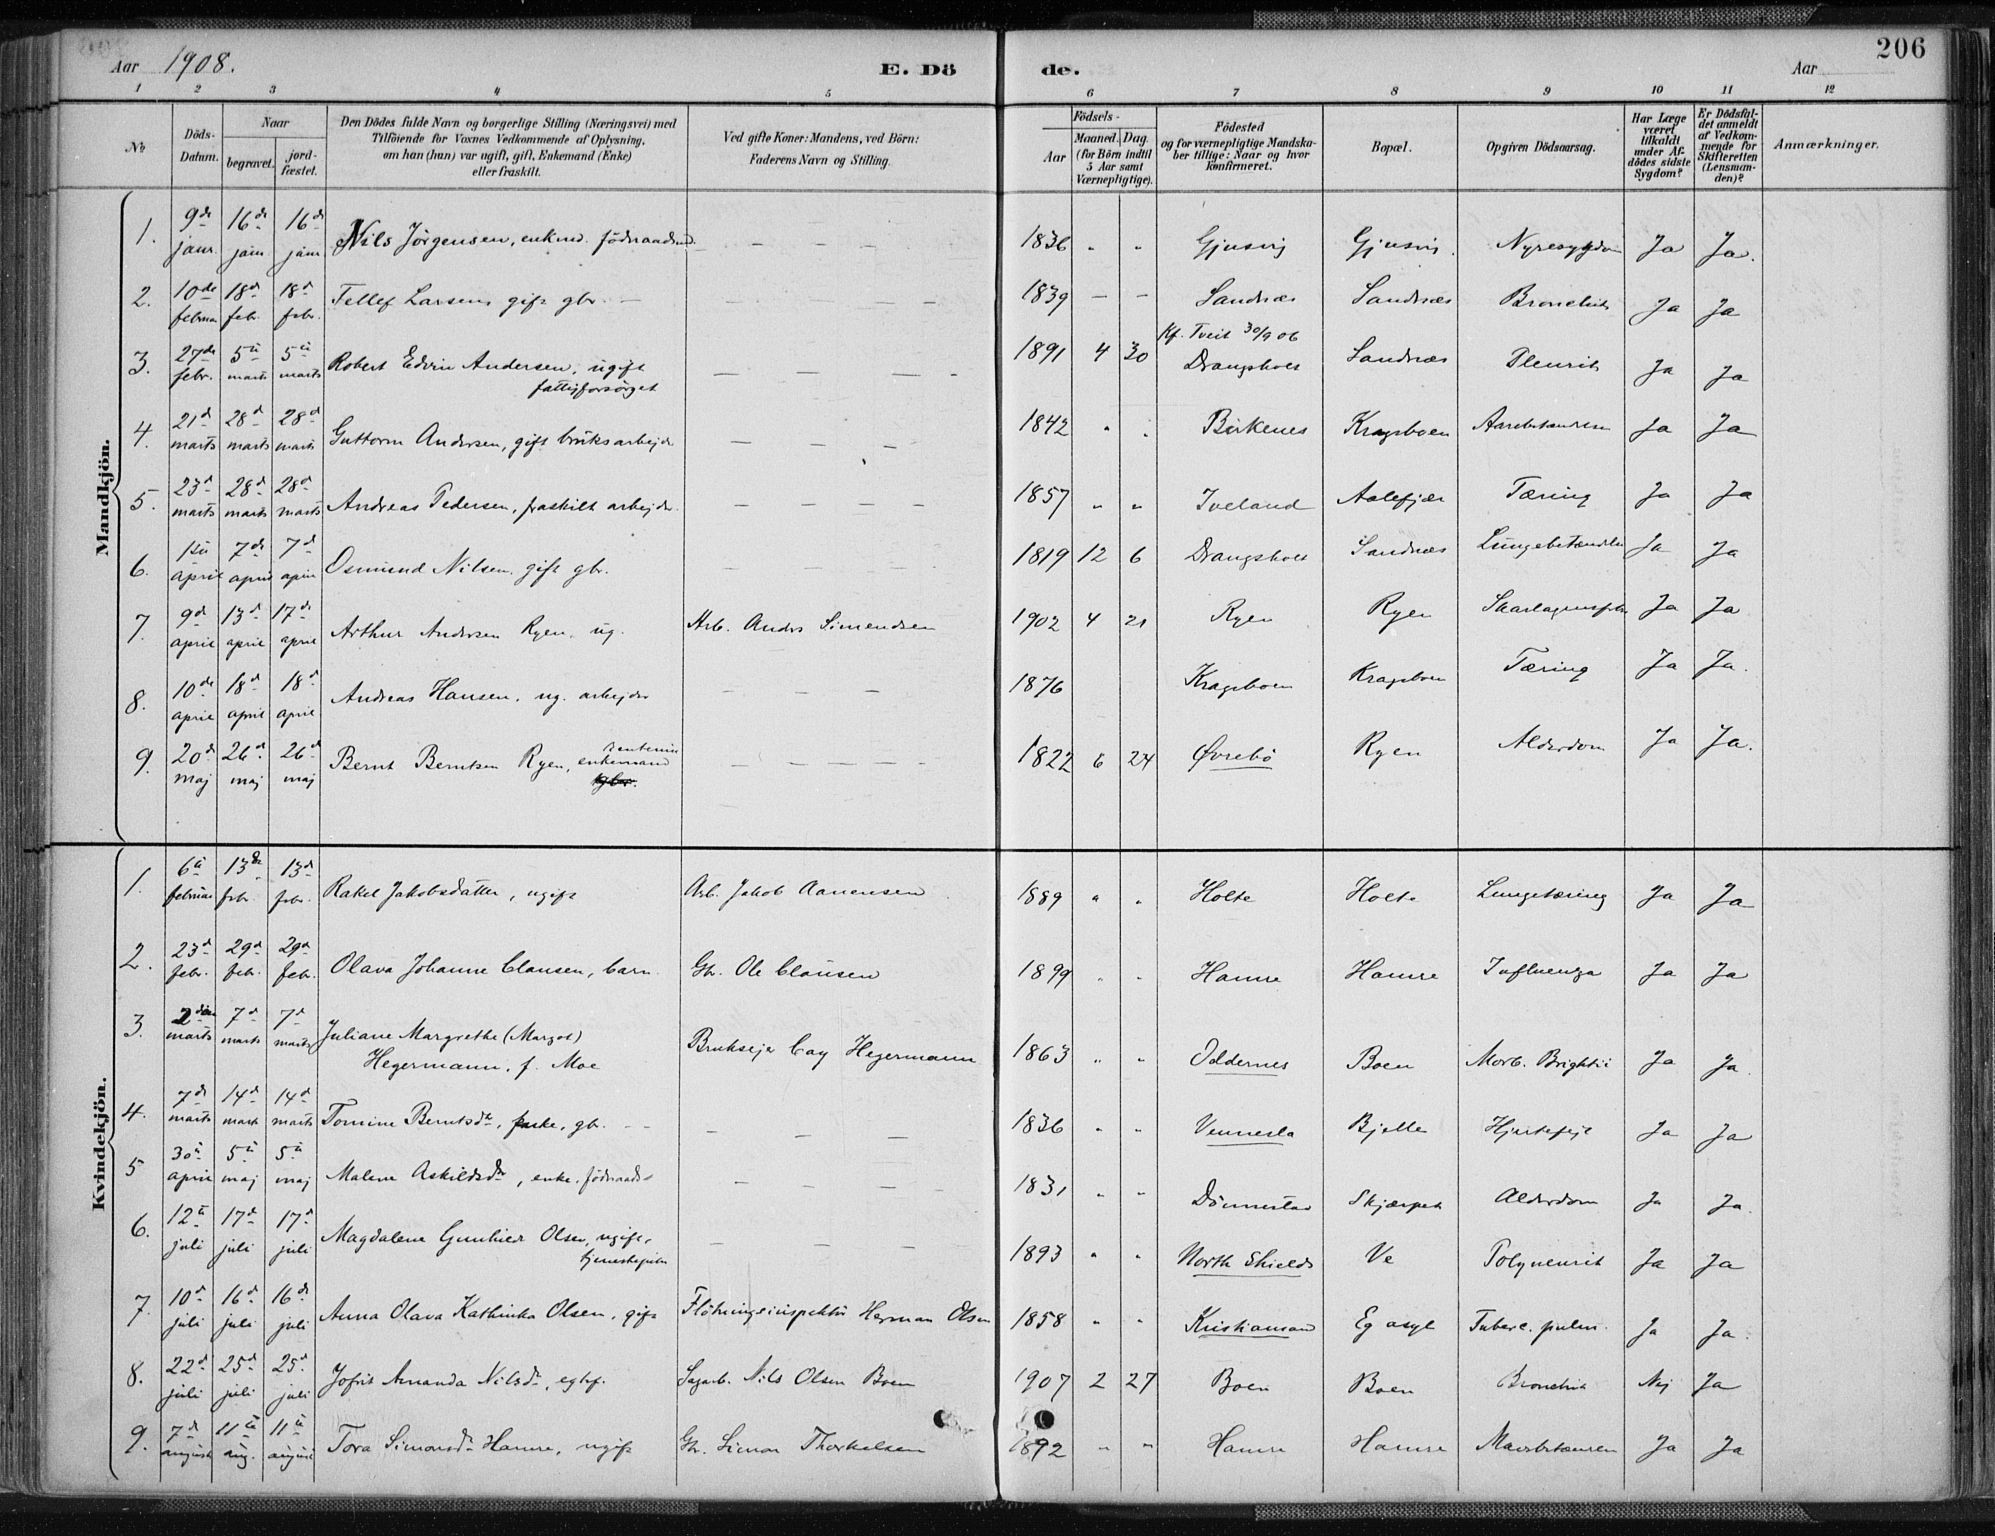 Aar 1908. E. Dö de. Aar 206
1 2 3 4 5 6 7 8 9 10 11 12
No
Döds-Datum.
Naar
begravet. jord-fæstet.
Den Dödes fulde Navn og borgerlige Stilling (Næringsvei) med
Tilföiende for Voxnes Vedkommende af Oplysning,
om han (hun) var ugift, gift, Enkemand (Enke)
eller fraskilt.
Ved gifte Koner: Mandens, ved Börn:
Faderens Navn og Stilling.
Födsels-
Aar Maaned. Dag.
(for Börn indtil
5 Aar samt
Værnepligtige).
Födested
og for værnepligtige Mandska-
ber tillige: Naar og hvor
konfirmeret.
Bopæl.
Opgiven Dödsaarsag.
Har Læge
været
tilkaldt
under Af-
dödes sidste
Sygdom?
Er Dödsfal-
det anmeldt
af Vedkom-
mende for
Skifteretten
(Lensman-
den)?
Anmærkninger.
Mandkjön.
1. 9de janr. 16de janr. 16de janr. Nils Jörgensen, enkmd. födraadsmd. — — — 1836 " " Gjusvig Gjusvig. Nyresygdom Ja Ja.
2. 10de februar 18d febr. 18d febr. Tellef Larsen, gift gbr. — — — — 1839 — — Sandnæs Sandnæs Bronchit Ja Ja
3. 27de febr. 5te marts 5te marts Robert Edvin Andersen, ugift
fattigforsörget — — — — 1891 4 30 Kf. Tveit 30/9 06
Drangsholt Sandnæs Pleurit Ja Ja
4. 21d marts 28d marts 28d marts Guttorm Andersen, gift bruksarbejder — — — 1842 " " Birkenes Kragsboen Ja Ja
5. 23d marts 28d marts 28d marts Andreas Pedersen, fraskilt arbejder. — — — — 1857 " " Iveland Aalefjær Tæring Ja Ja
6. 1ste april 7de april 7de april Osmund Nilsen, gift gbr. 1819 12 6 Drangsholt Sandnæs Lungebetændelse Ja Ja
7. 9d april 13d april 17de april Arthur Andersen Ryen, ug. Arb. Anders Simendsen 1902 4 21 Ryen Ryen Skarlagensfeber Ja Ja
8. 10de april 18d april 18d april Andreas Hansen, ug. arbejder — — — 1876 Kragsboen Kragsboen Tæring Ja Ja.
9. 20de maj 26d maj 26d maj Bernt Berntsen Ryen, enkemand
gbr. — — — — 1822 6 24 Øvrebö Ryen Alderdom Ja Ja.
Kvindekjön.
1. 6te februar 13de febr. 13de febr. Rakel Jakobsdatter, ugift Arb. Jakob Aanensen 1889 " " Holte Holte Lungetæring Ja Ja
2. 23d febr. 29d febr. 29d febr. Olava Johanne Clausen, barn. Gbr. Ole Clausen 1899 " " Hamre Hamre Influenza Ja Ja
3. 2den marts 7d marts 7d marts Juliane Margrethe (Margot)
Hegermann, f. Moe Bruksejer Cay Hegermann 1863 " " Oddernes Boen Morb. Brightii Ja Ja
4. 7de marts 14d marts 14d marts Tomine Berntsdr, enke, gbr. — — — 1836 " " Vennesla Bjelle Hjertefejl Ja Ja
5 30te april 5te maj 5te maj Malene Askildsdr, enke, födraads- — — — — 1831 " " Dönnestad Skjærpet Alderdom Ja Ja.
6. 12te juli 17d juli 17d juli Magdalene Gunhild Olsen, ugift,
tjenestepike — — — 1893 " " North Shields Ve Polyneurit Ja Ja
7. 10d juli 16d juli 16de juli Anna Olava Kathinka Olsen, gift Flötningsinspektör Herman Olsen 1858 " " Kristiansand Eg asyl Tuberc. pulm. Ja Ja.
8. 22d juli 25d juli 25d juli Jofrit Amanda Nilsdr, egtef. Sagarb. Nils Olsen Boen 1907 2 27 Boen Boen Bronchit Nej Ja
9. 7de august 11te aug. 11te august Tora Simonsdr Hamre, ugift Gbr. Simon Thorkelsen 1892 " " Hamre Hamre Ja Ja